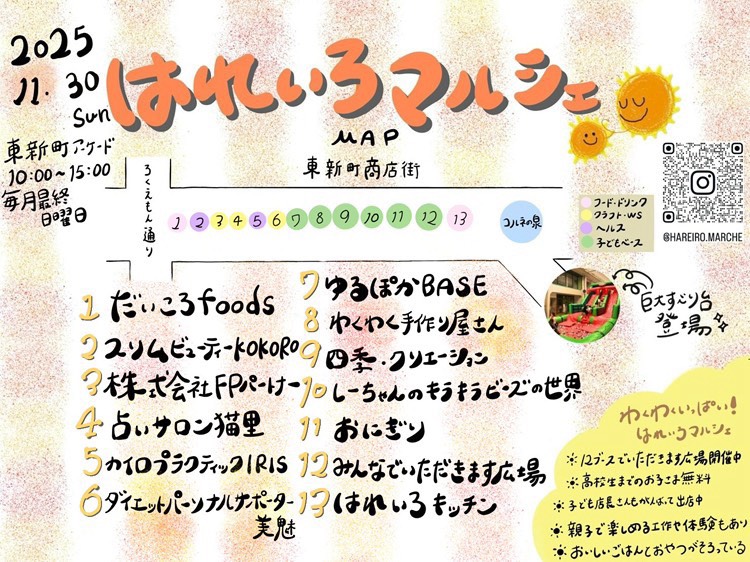 2025
11.30
Sun
はれいろマルシェ
MAP
東新町アーケード
10:00~15:00
毎月最終
日曜日
東新町商店街
ろくえもん通り
1 2 3 4 5 6 7 8 9 10 11 12 13
コルネの泉
フード・ドリンク
クラフト・WS
ヘルス
子どもベース
@HAREIRO.MARCHE
巨大すべり台
登場
1 だいころfoods
2 スリムビューティーKOKORO
3 株式会社FPパートナー
4 占いサロン猫里
5 カイロプラクティックIRIS
6 ダイエットパーソナルサポーター
美魅
7 ゆるぽかBASE
8 わくわく手作り屋さん
9 四季・クリエーション
10 しーちゃんのキラキラビーズの世界
11 おにぎり
12 みんなでいただきます広場
13 はれいろキッチン
わくわくいっぱい!
はれいろマルシェ
12ブースでいただきます広場開催中
高校生までのお子さま無料
子ども店長さんもがんばって出店中
親子で楽しめる工作や体験もあり
おいしいごはんとおやつがそろっている